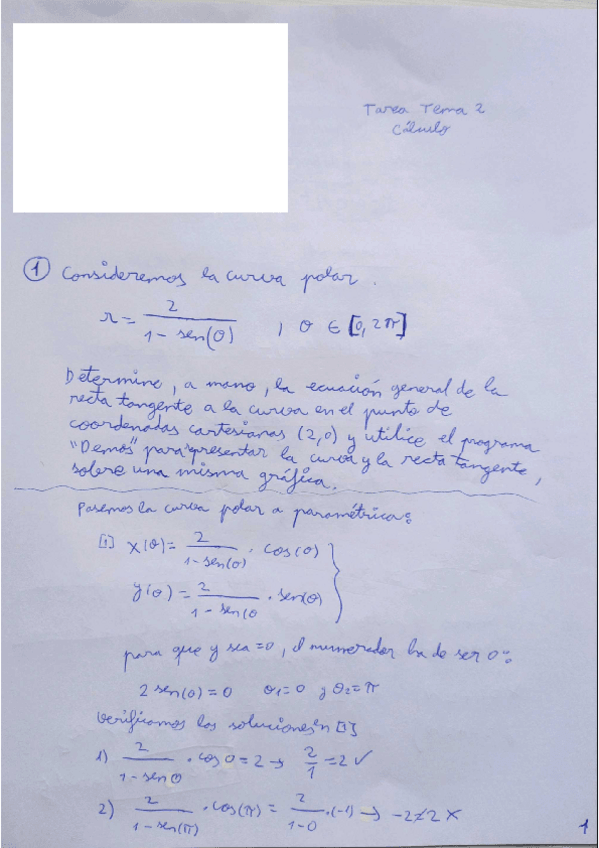 Tarea Tema 2
Cálculo
① Consideremos la curva polar.
r = 2 / (1 - sen(θ)) , θ ∈ [0, 2π]
Determine, a mano, la ecuación general de la
recta tangente a la curva en el punto de
coordenadas cartesianas (2,0) y utilice el programa
"Demos" para representar la curva y la recta tangente,
sobre una misma gráfica.
Pasemos la curva polar a paramétrica:
[1] x(θ) = 2 / (1 - sen(θ)) · cos(θ)
y(θ) = 2 / (1 - sen(θ · sen(θ)
para que y sea = 0, el numerador ha de ser 0:
2 sen(θ) = 0 θ₁ = 0 y θ₂ = π
Verificamos las soluciones en [1]
1) 2 / (1 - sen 0) · cos 0 = 2 → 2/1 = 2 ✓
2) 2 / (1 - sen(π)) · cos(π) = 2 / (1 - 0) · (-1) → -2 ≠ 2 ×
1